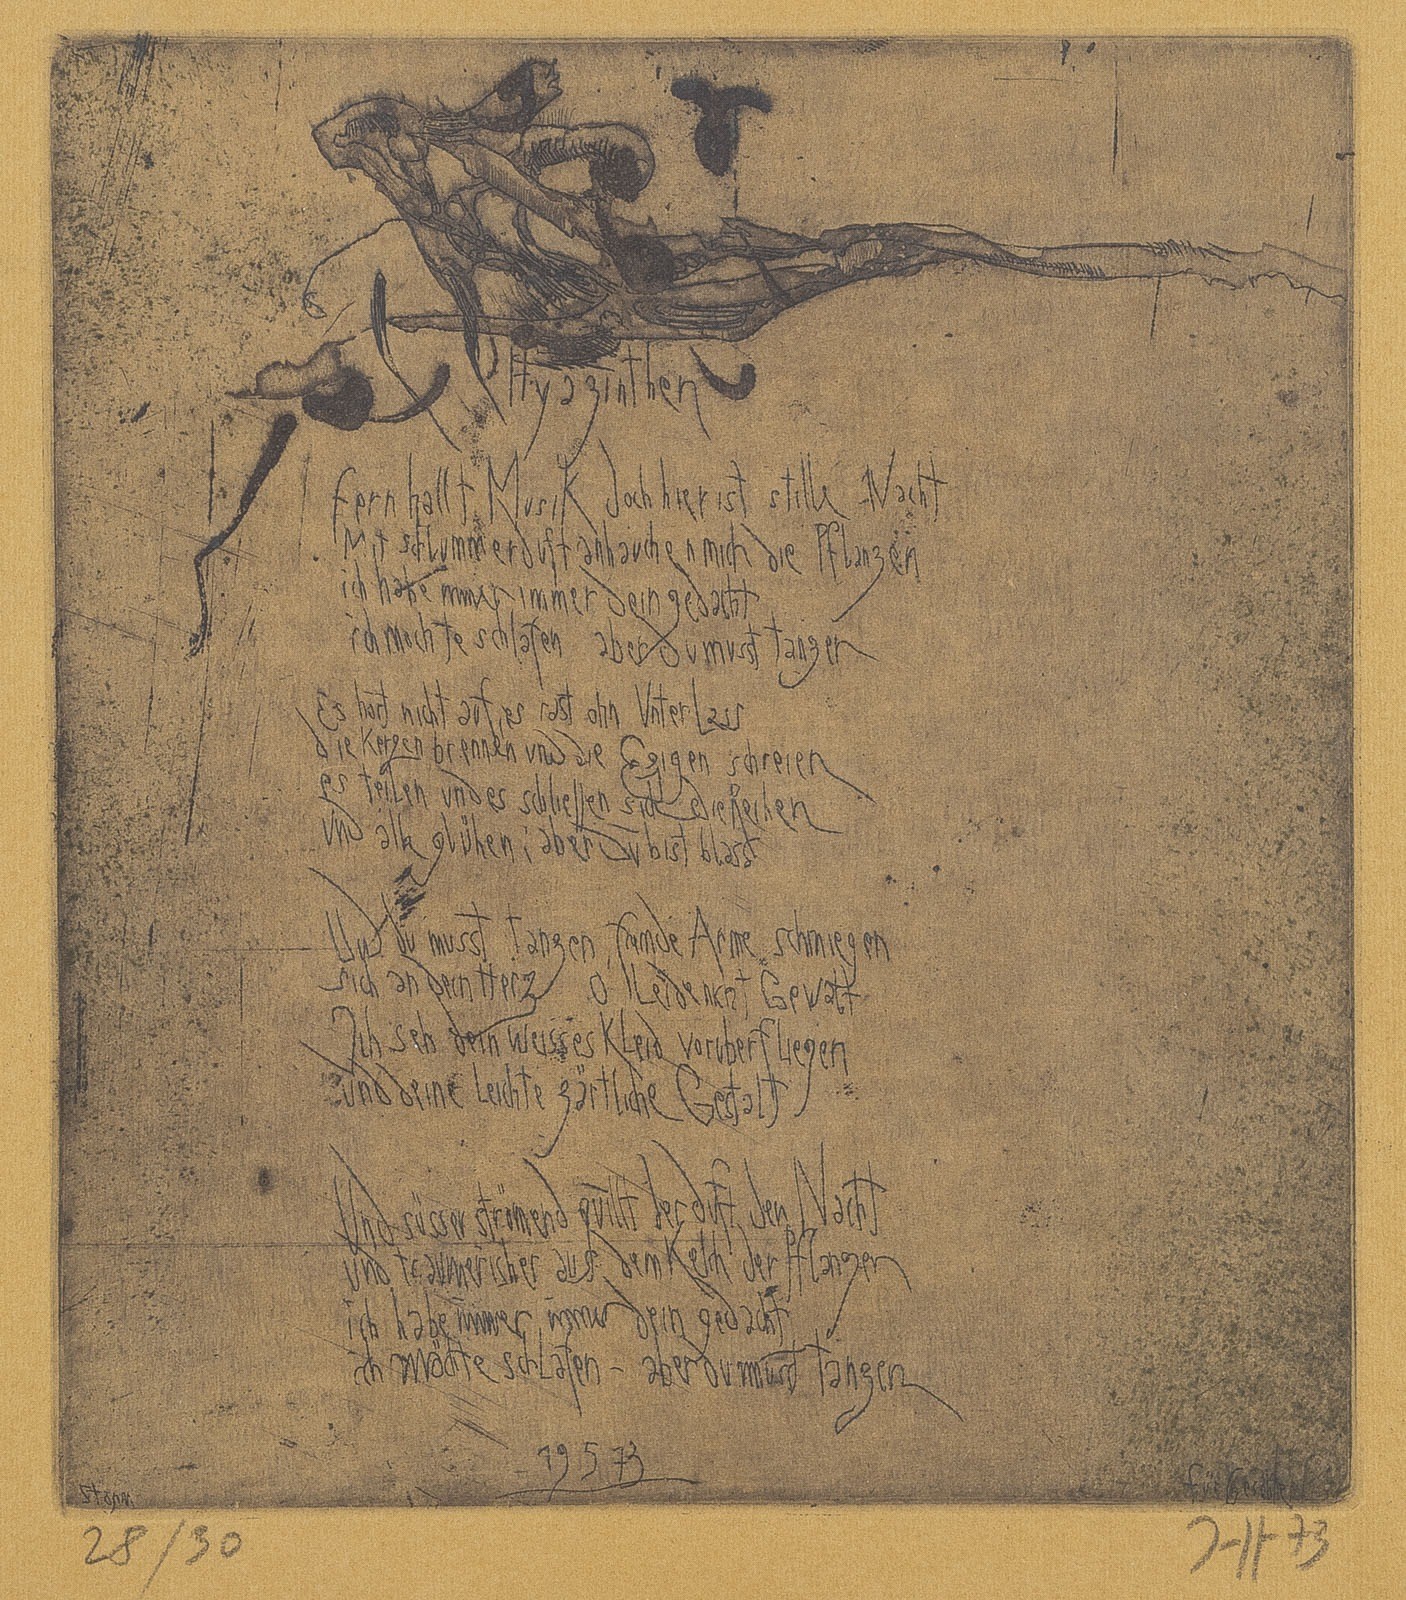 Hyazinthen
fern hallt Musik doch hier ist stille Nacht
Mit schlummerduft anhauchen mich die Pflanzen
ich habe immer immer dein gedacht
ich mochte schlafen aber du musst tanzen
Es hört nicht auf, es rast ohn Unterlass
die Kerzen brennen und die Geigen schreien
es teilen und es schliessen sich die Reihen
Und alle glühen; aber Du bist blass
Und du musst tanzen, fremde Arme schmiegen
sich an dein Herz O Gewalt
Ich seh dein weisses Kleid vorüberfliegen
und deine leichte zärtliche Gestalt
Und süsser strömend quillt der duft den Nacht
und träumerischer aus dem Kelch der Pflanzen
ich habe immer immer dein gedacht
ich möchte schlafen - aber du musst tanzen
19 5 73
Storm
für
28/30
73